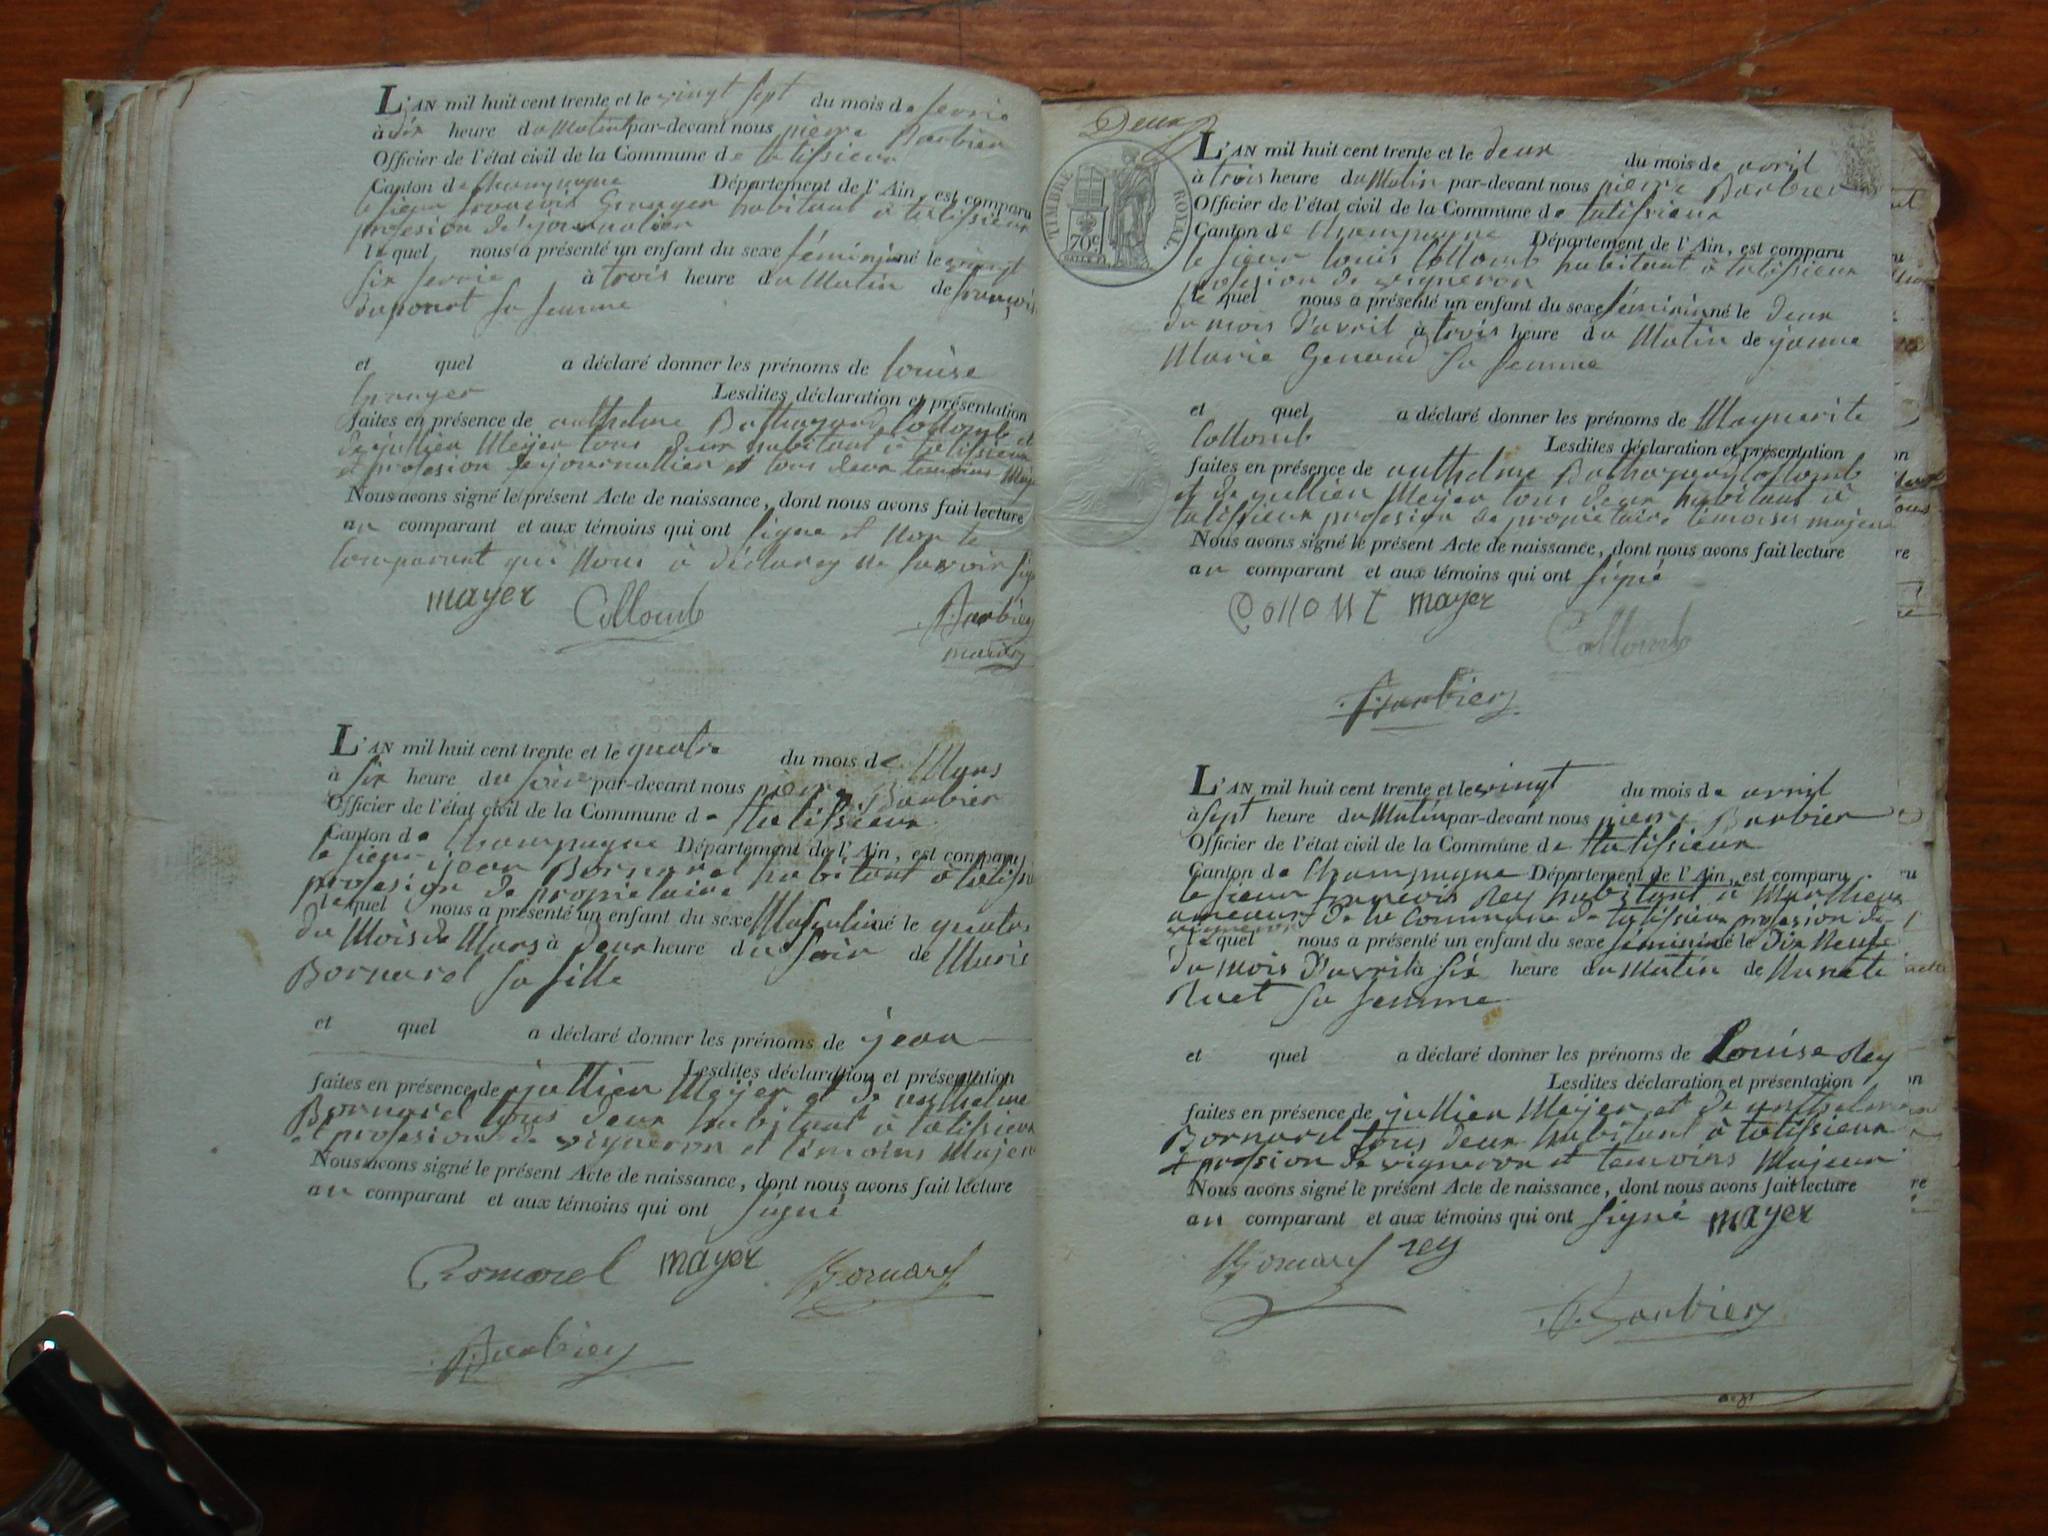 L'AN mil huit cent trente et le vingt sept du mois de fevrie
à dix heure du Matin par-devant nous pierre Barbier
Officier de l'état civil de la Commune de talissieux
Canton de Champagne Département de l'Ain, est comparu
le sieur françois Granger habitant à talissieux
profesion de journalier
lequel nous a présenté un enfant du sexe féminin né le vingt
six fevrie à trois heure du Matin de françoise
dupont sa femme
et quel a déclaré donner les prénoms de louise
Granger Lesdites déclaration et présentation
faites en présence de anthelme Balthazard Collomb et
de jullien Meÿer tous deux habitant à talissieux
et profesion de journallier et tous deux temoins Maj
Nous avons signé le présent Acte de naissance, dont nous avons fait lecture
au comparant et aux témoins qui ont signe et non le
Comparant qui Nous à déclarez ne savoir sig
mayer Collomb Barbier
maire
L'AN mil huit cent trente et le quatre du mois de Mars
à six heure du soir par-devant nous pierre Barbier
Officier de l'état civil de la Commune de talissieux
Canton de Champagne Département de l'Ain, est comparu
le sieur jean Bornarel habitant à taliss
profesion de propriétaire
lequel nous a présenté un enfant du sexe Masculin né le quatre
du Mois de Mars à deux heure du soir de Marie
Bornarel sa fille
et quel a déclaré donner les prénoms de jean
Lesdites déclaration et présentation
faites en présence de jullien Meÿer et de anthelme
Bornard tous deux habitant à talissieux
et profesion de vigneron et témoins Majeur
Nous avons signé le présent Acte de naissance, dont nous avons fait lecture
au comparant et aux témoins qui ont signé
Bornarel mayer Bornard
Barbier
Deux
TIMBRE ROYAL
70c
L'AN mil huit cent trente et le deux du mois de avril
à trois heure du Matin par-devant nous pierre Barbier
Officier de l'état civil de la Commune de talissieux
Canton de Champagne Département de l'Ain, est comparu
le sieur louis Collomb habitant à talissieux
profesion de vigneron
lequel nous a présenté un enfant du sexe féminin né le deux
du mois d'avril à trois heure du Matin de jeanne
Marie Genaud sa femme
et quel a déclaré donner les prénoms de Marguerite
Collomb Lesdites déclaration et présentation
faites en présence de anthelme Balthazard Collomb
et de jullien Meÿer tous deux habitant à
talissieux profesion de propriétaire témoins majeur
Nous avons signé le présent Acte de naissance, dont nous avons fait lecture
au comparant et aux témoins qui ont signé
mayer
Collomb
Barbier
L'AN mil huit cent trente et le vingt du mois de avril
à sept heure du Matin par-devant nous pierre Barbier
Officier de l'état civil de la Commune de talissieux
Canton de Champagne Département de l'Ain, est comparu
le sieur françois Rey habitant à Marlieux
ameaux de la Commune de talissieux profesion de
vigneron
lequel nous a présenté un enfant du sexe féminin né le Dix Neufe
du mois d'avril à six heure du Matin de Nanete
Ruet sa femme
et quel a déclaré donner les prénoms de Louise Rey
Lesdites déclaration et présentation
faites en présence de jullien Meÿer et de anthelme
Bornard tous deux habitant à talissieux
et profesion de vigneron et temoins Majeur
Nous avons signé le présent Acte de naissance, dont nous avons fait lecture
au comparant et aux témoins qui ont signé mayer
Bornard rey
Barbier